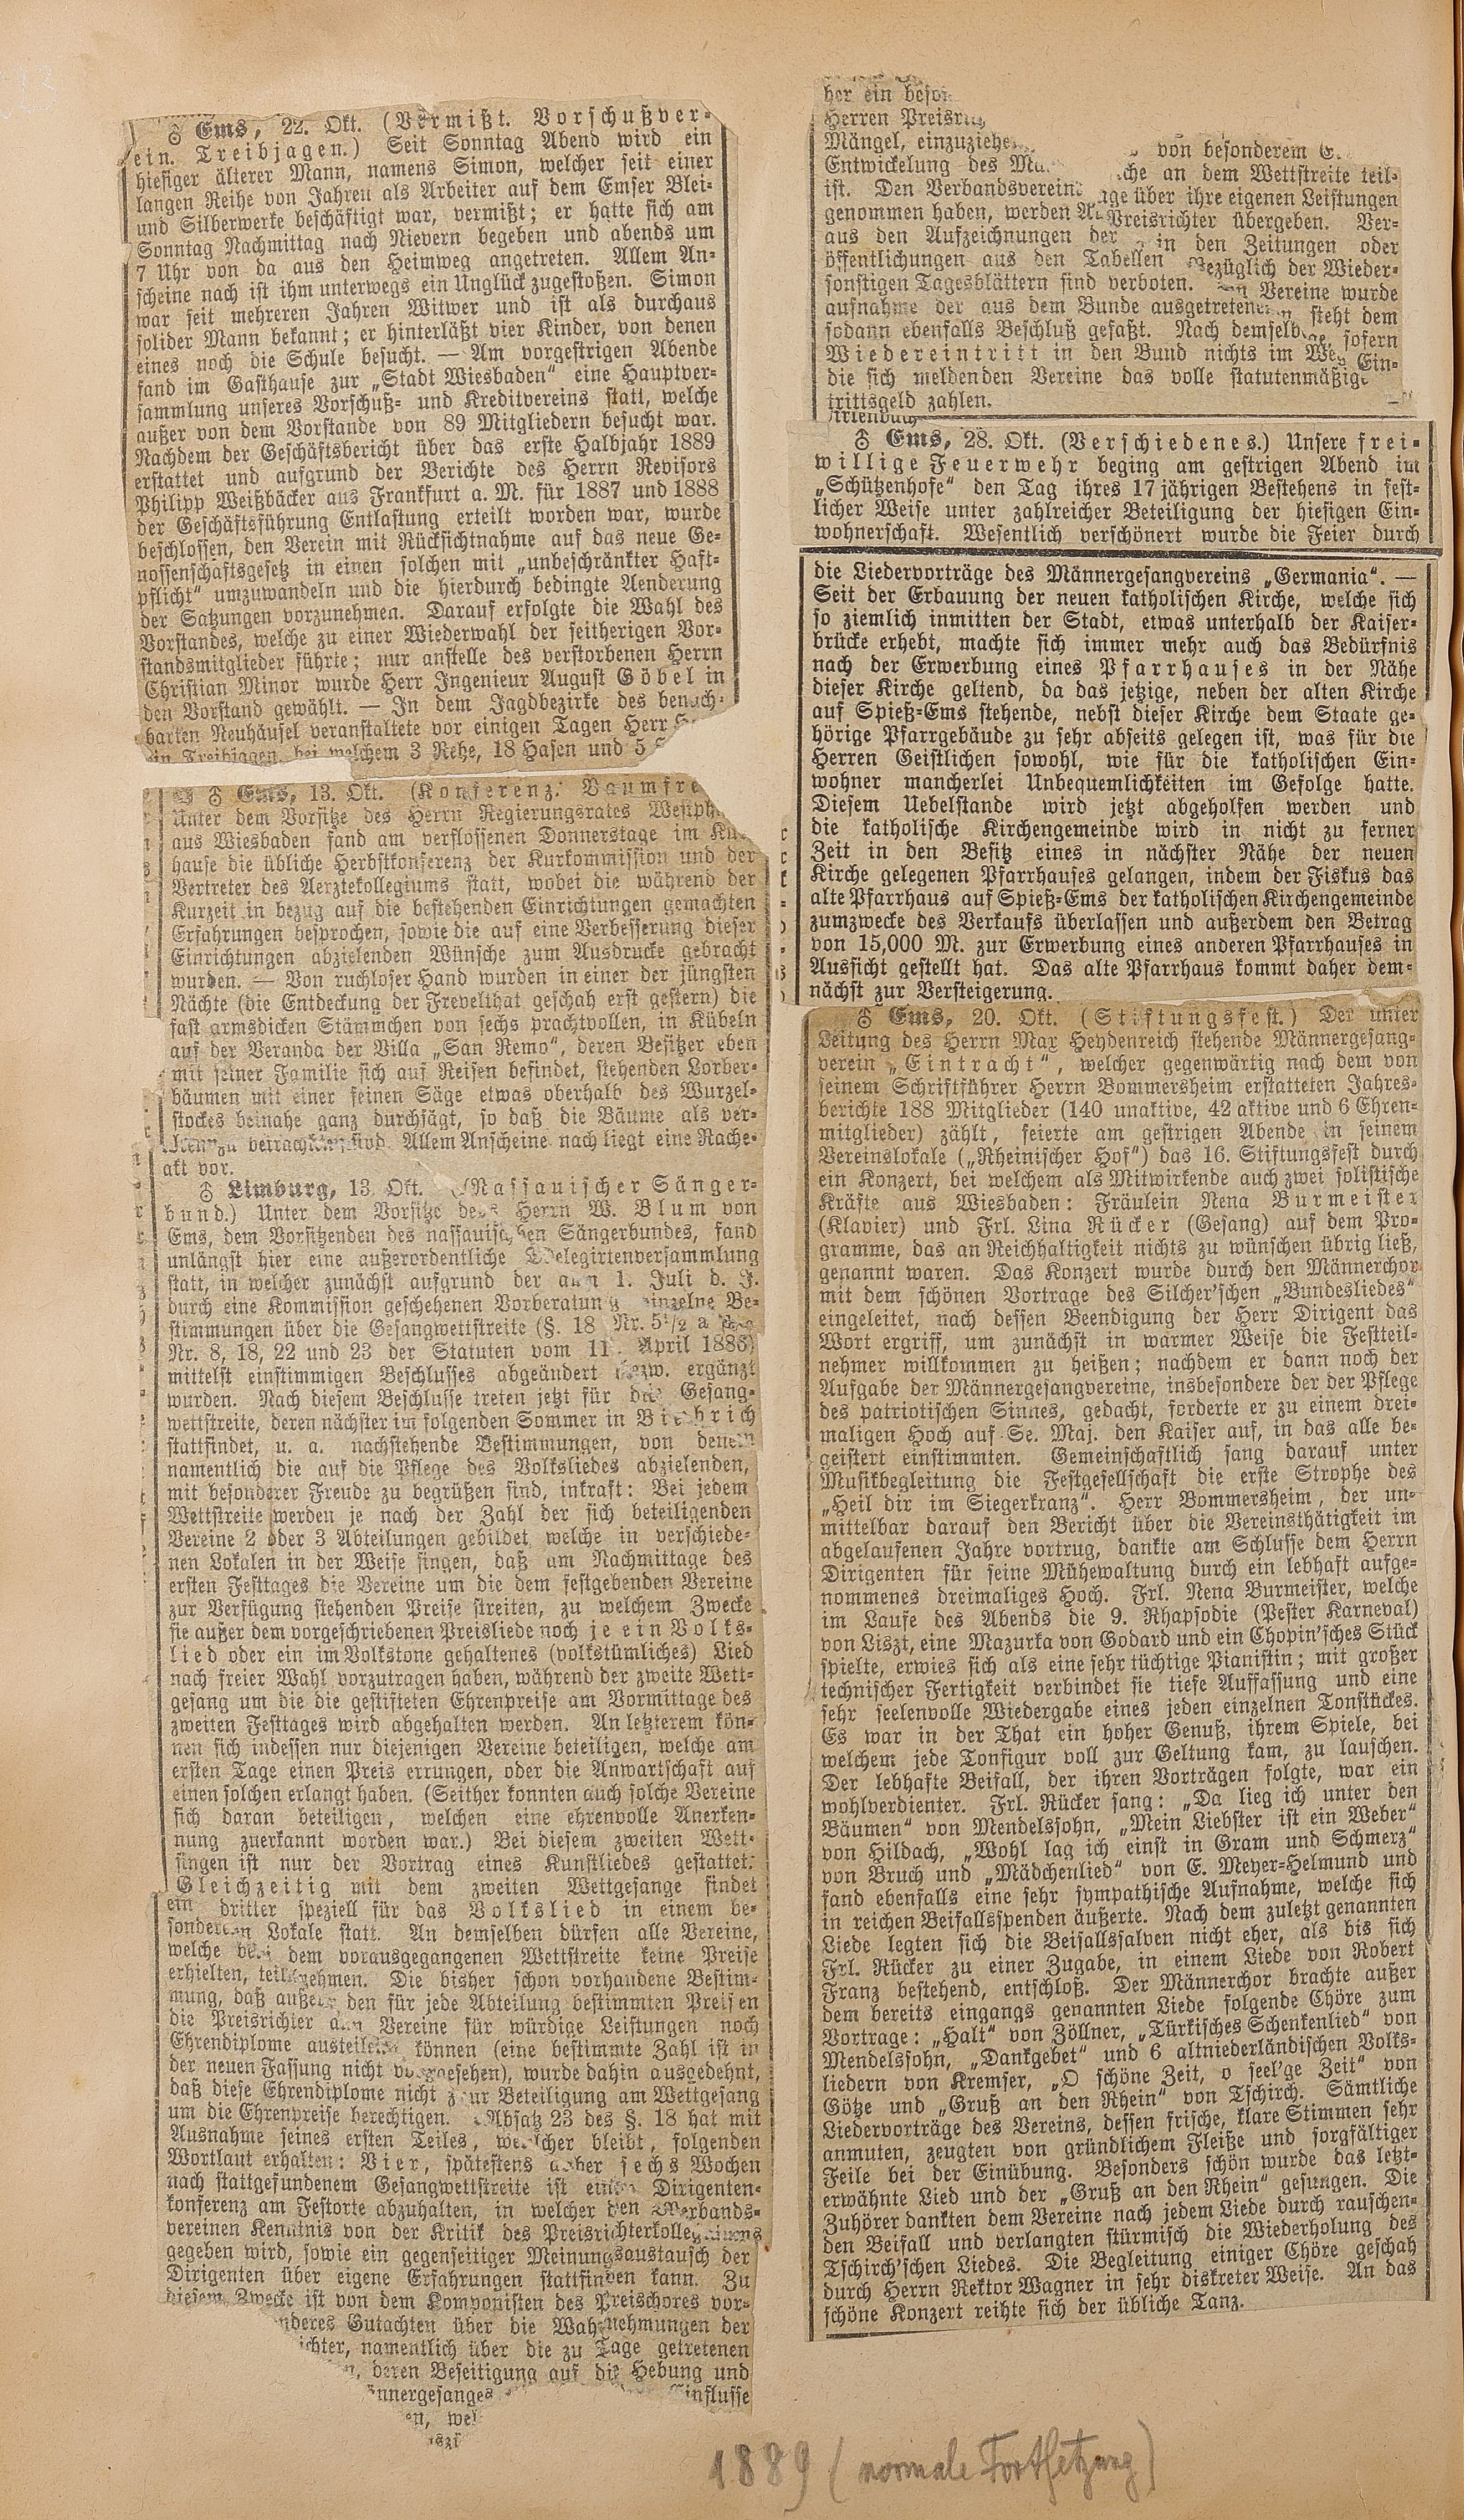 ♁ Ems, 22. Okt. (Vermißt. Vorschußver-
ein. Treibjagen.) Seit Sonntag Abend wird ein
hiesiger älterer Mann, namens Simon, welcher seit einer
langen Reihe von Jahren als Arbeiter auf dem Emser Blei-
und Silberwerke beschäftigt war, vermißt; er hatte sich am
Sonntag Nachmittag nach Nievern begeben und abends um
7 Uhr von da aus den Heimweg angetreten. Allem An-
scheine nach ist ihm unterwegs ein Unglück zugestoßen. Simon
war seit mehreren Jahren Witwer und ist als durchaus
solider Mann bekannt; er hinterläßt vier Kinder, von denen
eines noch die Schule besucht. — Am vorgestrigen Abende
fand im Gasthause zur „Stadt Wiesbaden“ eine Hauptver-
sammlung unseres Vorschuß- und Kreditvereins statt, welche
außer von dem Vorstande von 89 Mitgliedern besucht war.
Nachdem der Geschäftsbericht über das erste Halbjahr 1889
erstattet und aufgrund der Berichte des Herrn Revisors
Philipp Weißbäcker aus Frankfurt a. M. für 1887 und 1888
der Geschäftsführung Entlastung erteilt worden war, wurde
beschlossen, den Verein mit Rücksichtnahme auf das neue Ge-
nossenschaftsgesetz in einen solchen mit „unbeschränkter Haft-
pflicht“ umzuwandeln und die hierdurch bedingte Aenderung
der Satzungen vorzunehmen. Darauf erfolgte die Wahl des
Vorstandes, welche zu einer Wiederwahl der seitherigen Vor-
standsmitglieder führte; nur anstelle des verstorbenen Herrn
Christian Minor wurde Herr Ingenieur August Göbel in
den Vorstand gewählt. — In dem Jagdbezirke des benach-
barten Neuhäusel veranstaltete vor einigen Tagen Herr
ein Treibjagen, bei welchem 3 Rehe, 18 Hasen und 5
♁ Ems, 13. Okt. (Konferenz. Baumfre
Unter dem Vorsitze des Herrn Regierungsrates Westph
aus Wiesbaden fand am verflossenen Donnerstage im Kur-
hause die übliche Herbstkonferenz der Kurkommission und der
Vertreter des Aerztekollegiums statt, wobei die während der
Kurzeit in bezug auf die bestehenden Einrichtungen gemachten
Erfahrungen besprochen, sowie die auf eine Verbesserung dieser
Einrichtungen abzielenden Wünsche zum Ausdrucke gebracht
wurden. — Von ruchloser Hand wurden in einer der jüngsten
Nächte (die Entdeckung der Frevelthat geschah erst gestern) die
fast armsdicken Stämmchen von sechs prachtvollen, in Kübeln
auf der Veranda der Villa „San Remo“, deren Besitzer eben
mit seiner Familie sich auf Reisen befindet, stehenden Lorber-
bäumen mit einer feinen Säge etwas oberhalb des Wurzel-
stockes beinahe ganz durchsägt, so daß die Bäume als ver-
zu betrachten sind. Allem Anscheine nach liegt eine Rache-
akt vor.
♁ Limburg, 13. Okt. (Nassauischer Sänger-
bund.) Unter dem Vorsitze des Herrn W. Blum von
Ems, dem Vorsitzenden des nassauischen Sängerbundes, fand
unlängst hier eine außerordentliche Delegirtenversammlung
statt, in welcher zunächst aufgrund der am 1. Juli d. J.
durch eine Kommission geschehenen Vorberatung einzelne Be-
stimmungen über die Gesangwettstreite (§. 18 Nr. 5½ a
Nr. 8, 18, 22 und 23 der Statuten vom 11. April 1886)
mittelst einstimmigen Beschlusses abgeändert bezw. ergänzt
wurden. Nach diesem Beschlusse treten jetzt für die Gesang-
wettstreite, deren nächster im folgenden Sommer in Biebrich
stattfindet, u. a. nachstehende Bestimmungen, von denen
namentlich die auf die Pflege des Volksliedes abzielenden,
mit besonderer Freude zu begrüßen sind, inkraft: Bei jedem
Wettstreite werden je nach der Zahl der sich beteiligenden
Vereine 2 oder 3 Abteilungen gebildet, welche in verschiede-
nen Lokalen in der Weise singen, daß am Nachmittage des
ersten Festtages die Vereine um die dem festgebenden Vereine
zur Verfügung stehenden Preise streiten, zu welchem Zwecke
sie außer dem vorgeschriebenen Preisliede noch je ein Volks-
lied oder ein im Volkstone gehaltenes (volkstümliches) Lied
nach freier Wahl vorzutragen haben, während der zweite Wett-
gesang um die die gestifteten Ehrenpreise am Vormittage des
zweiten Festtages wird abgehalten werden. An letzterem kön-
nen sich indessen nur diejenigen Vereine beteiligen, welche am
ersten Tage einen Preis errungen, oder die Anwartschaft auf
einen solchen erlangt haben. (Seither konnten auch solche Vereine
sich daran beteiligen, welchen eine ehrenvolle Anerken-
nung zuerkannt worden war.) Bei diesem zweiten Wett-
singen ist nur der Vortrag eines Kunstliedes gestattet.
Gleichzeitig mit dem zweiten Wettgesange findet
ein dritter speziell für das Volkslied in einem be-
sonderen Lokale statt. An demselben dürfen alle Vereine,
welche bei dem vorausgegangenen Wettstreite keine Preise
erhielten, teilnehmen. Die bisher schon vorhandene Bestim-
mung, daß außer den für jede Abteilung bestimmten Preisen
die Preisrichter an Vereine für würdige Leistungen noch
Ehrendiplome austeilen können (eine bestimmte Zahl ist in
der neuen Fassung nicht vorgesehen), wurde dahin ausgedehnt,
daß diese Ehrendiplome nicht zur Beteiligung am Wettgesang
um die Ehrenpreise berechtigen. Absatz 23 des §. 18 hat mit
Ausnahme seines ersten Teiles, welcher bleibt, folgenden
Wortlaut erhalten: Vier, spätestens aber sechs Wochen
nach stattgefundenem Gesangwettstreite ist eine Dirigenten-
konferenz am Festorte abzuhalten, in welcher den Verbands-
vereinen Kenntnis von der Kritik des Preisrichterkollegiums
gegeben wird, sowie ein gegenseitiger Meinungsaustausch der
Dirigenten über eigene Erfahrungen stattfinden kann. Zu
diesem Zwecke ist von dem Komponisten des Preischores vor-
nderes Gutachten über die Wahrnehmungen der
ichter, namentlich über die zu Tage getretenen
, deren Beseitigung auf die Hebung und
ännergesanges Einflusse
en, wel
her ein beson
Herren Preisri
Mängel, einzuziehe
Entwickelung des Mä von besonderem E
ist. Den Verbandsvereinen che an dem Wettstreite teil-
genommen haben, werden A age über ihre eigenen Leistungen
aus den Aufzeichnungen der Preisrichter übergeben. Ver-
öffentlichungen aus den Tabellen in den Zeitungen oder
sonstigen Tagesblättern sind verboten. Bezüglich der Wieder-
aufnahme der aus dem Bunde ausgetretenen Vereine wurde
sodann ebenfalls Beschluß gefaßt. Nach demselben steht dem
Wiedereintritt in den Bund nichts im Wege, sofern
die sich meldenden Vereine das volle statutenmäßige Ein-
trittsgeld zahlen.
♁ Ems, 28. Okt. (Verschiedenes.) Unsere frei-
willige Feuerwehr beging am gestrigen Abend im
„Schützenhofe“ den Tag ihres 17jährigen Bestehens in fest-
licher Weise unter zahlreicher Beteiligung der hiesigen Ein-
wohnerschaft. Wesentlich verschönert wurde die Feier durch
die Liedervorträge des Männergesangvereins „Germania“. —
Seit der Erbauung der neuen katholischen Kirche, welche sich
so ziemlich inmitten der Stadt, etwas unterhalb der Kaiser-
brücke erhebt, machte sich immer mehr auch das Bedürfnis
nach der Erwerbung eines Pfarrhauses in der Nähe
dieser Kirche geltend, da das jetzige, neben der alten Kirche
auf Spieß-Ems stehende, nebst dieser Kirche dem Staate ge-
hörige Pfarrgebäude zu sehr abseits gelegen ist, was für die
Herren Geistlichen sowohl, wie für die katholischen Ein-
wohner mancherlei Unbequemlichkeiten im Gefolge hatte.
Diesem Uebelstande wird jetzt abgeholfen werden und
die katholische Kirchengemeinde wird in nicht zu ferner
Zeit in den Besitz eines in nächster Nähe der neuen
Kirche gelegenen Pfarrhauses gelangen, indem der Fiskus das
alte Pfarrhaus auf Spieß-Ems der katholischen Kirchengemeinde
zumzwecke des Verkaufs überlassen und außerdem den Betrag
von 15,000 M. zur Erwerbung eines anderen Pfarrhauses in
Aussicht gestellt hat. Das alte Pfarrhaus kommt daher dem-
nächst zur Versteigerung.
♁ Ems, 20. Okt. (Stiftungsfest.) Der unter
Leitung des Herrn Max Heydenreich stehende Männergesang-
verein „Eintracht“, welcher gegenwärtig nach dem von
seinem Schriftführer Herrn Bommersheim erstatteten Jahres-
berichte 188 Mitglieder (140 unaktive, 42 aktive und 6 Ehren-
mitglieder) zählt, feierte am gestrigen Abende in seinem
Vereinslokale („Rheinischer Hof“) das 16. Stiftungsfest durch
ein Konzert, bei welchem als Mitwirkende auch zwei solistische
Kräfte aus Wiesbaden: Fräulein Nena Burmeister
(Klavier) und Frl. Lina Rücker (Gesang) auf dem Pro-
gramme, das an Reichhaltigkeit nichts zu wünschen übrig ließ,
genannt waren. Das Konzert wurde durch den Männerchor
mit dem schönen Vortrage des Silcher’schen „Bundesliedes“
eingeleitet, nach dessen Beendigung der Herr Dirigent das
Wort ergriff, um zunächst in warmer Weise die Festteil-
nehmer willkommen zu heißen; nachdem er dann noch der
Aufgabe der Männergesangvereine, insbesondere der der Pflege
des patriotischen Sinnes, gedacht, forderte er zu einem drei-
maligen Hoch auf Se. Maj. den Kaiser auf, in das alle be-
geistert einstimmten. Gemeinschaftlich sang darauf unter
Musikbegleitung die Festgesellschaft die erste Strophe des
„Heil dir im Siegerkranz“. Herr Bommersheim, der un-
mittelbar darauf den Bericht über die Vereinsthätigkeit im
abgelaufenen Jahre vortrug, dankte am Schlusse dem Herrn
Dirigenten für seine Mühewaltung durch ein lebhaft aufge-
nommenes dreimaliges Hoch. Frl. Nena Burmeister, welche
im Laufe des Abends die 9. Rhapsodie (Pester Karneval)
von Liszt, eine Mazurka von Godard und ein Chopin’sches Stück
spielte, erwies sich als eine sehr tüchtige Pianistin; mit großer
technischer Fertigkeit verbindet sie tiefe Auffassung und eine
sehr seelenvolle Wiedergabe eines jeden einzelnen Tonstückes.
Es war in der That ein hoher Genuß, ihrem Spiele, bei
welchem jede Tonfigur voll zur Geltung kam, zu lauschen.
Der lebhafte Beifall, der ihren Vorträgen folgte, war ein
wohlverdienter. Frl. Rücker sang: „Da lieg ich unter den
Bäumen“ von Mendelssohn, „Mein Liebster ist ein Weber“
von Hildach, „Wohl lag ich einst in Gram und Schmerz“
von Bruch und „Mädchenlied“ von E. Meyer-Helmund und
fand ebenfalls eine sehr sympathische Aufnahme, welche sich
in reichen Beifallsspenden äußerte. Nach dem zuletzt genannten
Liede legten sich die Beifallssalven nicht eher, als bis sich
Frl. Rücker zu einer Zugabe, in einem Liede von Robert
Franz bestehend, entschloß. Der Männerchor brachte außer
dem bereits eingangs genannten Liede folgende Chöre zum
Vortrage: „Halt“ von Zöllner, „Türkisches Schenkenlied“ von
Mendelssohn, „Dankgebet“ und 6 altniederländischen Volks-
liedern von Kremser, „O schöne Zeit, o seel’ge Zeit“ von
Götze und „Gruß an den Rhein“ von Tschirch. Sämtliche
Liedervorträge des Vereins, dessen frische, klare Stimmen sehr
anmuten, zeugten von gründlichem Fleiße und sorgfältiger
Feile bei der Einübung. Besonders schön wurde das letzt-
erwähnte Lied und der „Gruß an den Rhein“ gesungen. Die
Zuhörer dankten dem Vereine nach jedem Liede durch rauschen-
den Beifall und verlangten stürmisch die Wiederholung des
Tschirch’schen Liedes. Die Begleitung einiger Chöre geschah
durch Herrn Rektor Wagner in sehr diskreter Weise. An das
schöne Konzert reihte sich der übliche Tanz.
1889 (normale Fortsetzung)